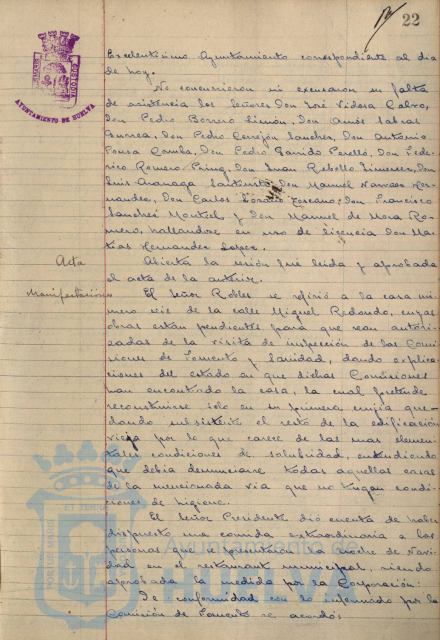 22
AYUNTAMIENTO DE HUELVA
Excelentísimo Ayuntamiento correspondiente al día
de hoy.
No concurrieron ni excusaron su falta
de asistencia los Señores Don José Vidosa Calvo,
Don Pedro Borrero Limón, Don Amós Sabras
Gurrea, Don Pedro Cerrejón Sanchez, Don Antonio
Ponsa Don Pedro Garrido Perelló, Don Fede-
rico Romero Don Juan Rebollo Jimenez, Don
Luis Don Manuel Narvaez Her-
nandez, Don Carlos Don Francisco
Sanchez Monteil y Don Manuel de Mora Ro-
mero, hallandose en uso de licencia Don Ma-
tías Hernandez Lopez.
Acta
Abierta la sesión fué leida y aprobada
el acta de la anterior.
Manifestaciones
El Señor Robles se refirió a la casa nú-
mero seis de la calle Miguel Redondo, cuyas
obras están pendientes para que sean autori-
zadas de la visita de inspección de las Comi-
siones de Fomento y Sanidad, dando explica-
ciones del estado en que dichas Comisiones
han encontrado la casa, la cual pretende
reconstruirse solo en su primera crujía que-
dando subsistente el resto de la edificación
vieja por lo que carece de las mas elemen-
tales condiciones de salubridad, entendiendo
que debia denunciarse todas aquellas casas
de la mencionada via que no tengan condi-
ciones de higiene.
El Señor Presidente dió cuenta de haber
dispuesto una comida extraordinaria a las
personas que se presentaron la noche de Navi-
dad en el restaurant municipal, siendo
aprobada la medida por la Corporación.
De conformidad con lo informado por la
Comisión de Fomento se acordó:
Ayuntamiento de
HUELVA